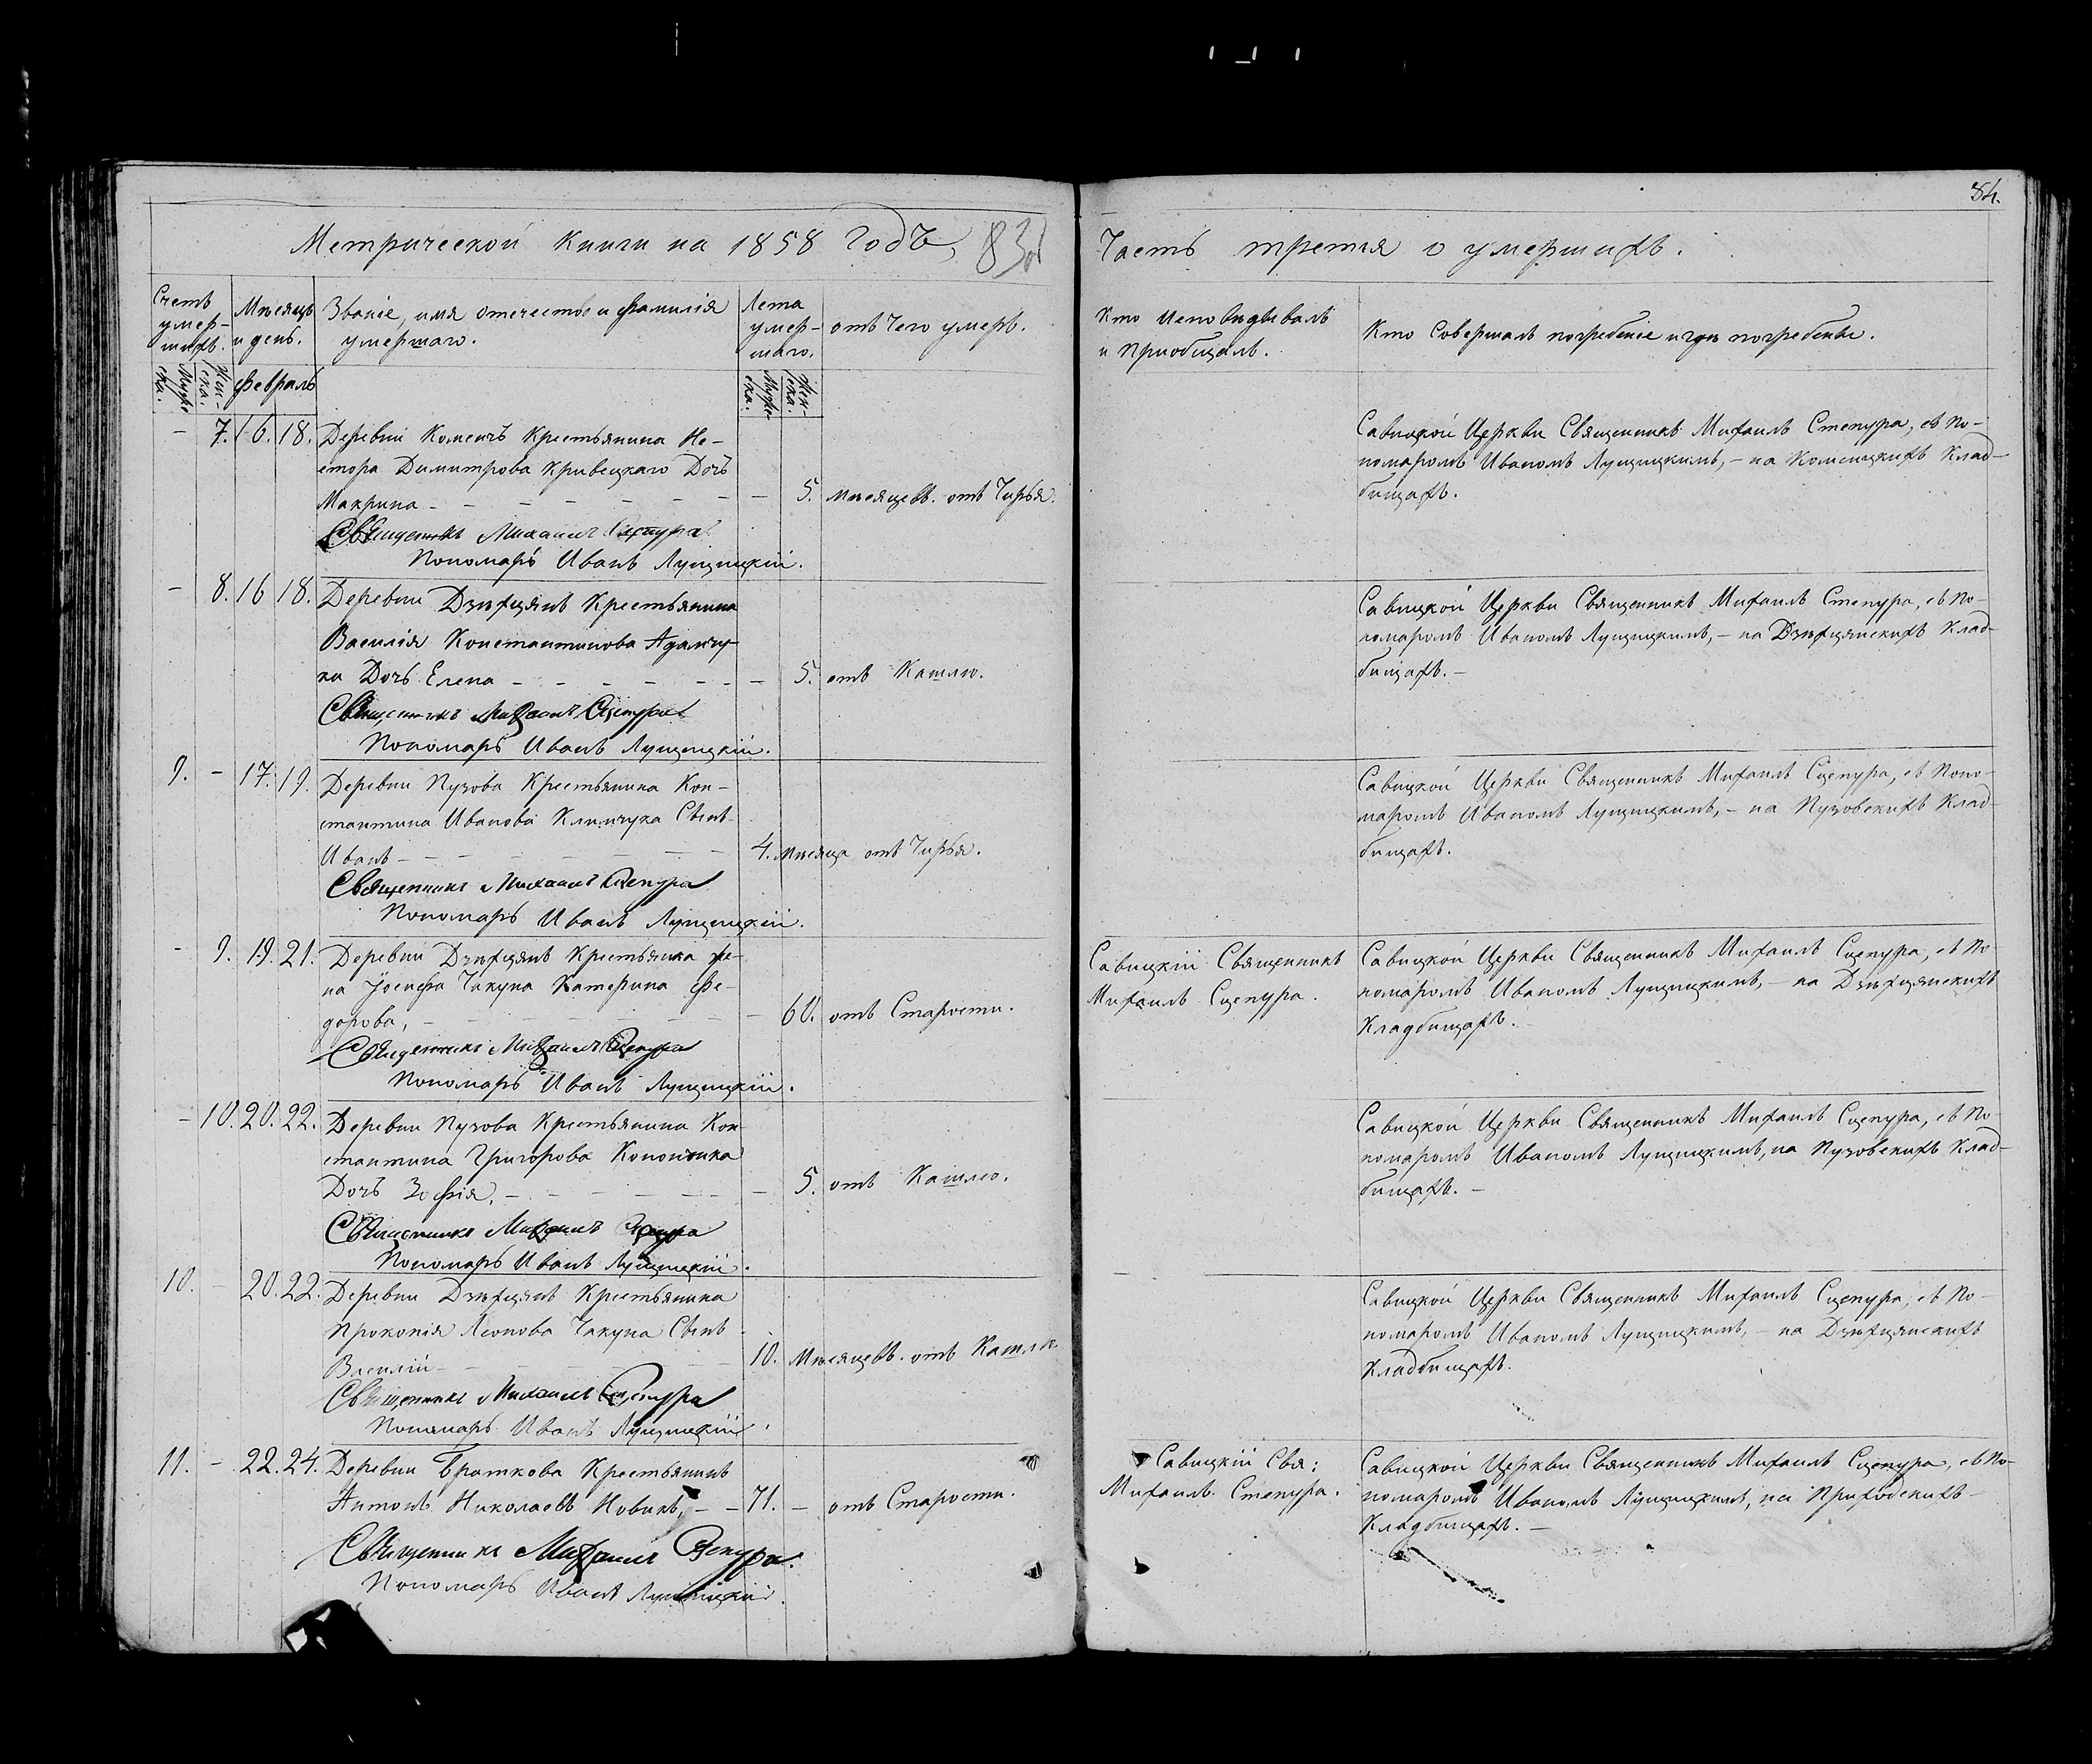 84.
Метрической Книги на 1858 Годъ, 83об
Часть третія о умершихъ.
Счетъ умер-шихъ.
Мѣсяцъ и день.
Званіе, имя отечество и фамилія умершаго.
Лета умер-шаго.
отъ Чего умеръ.
Кто исповѣдывалъ и Приобщалъ.
Кто Совершалъ погребеніе и гдѣ погребены.
Муже ска.
Жен-ска.
Февраль
Муже ска.
Жен-ска.
– 7. 16. 18. Деревни Коменъ Крестьянина Не-
стора Димитрова Кривецкаго Дочь
Макрина – – 5. мѣсяцевъ. отъ Чирья.
Священникъ Михаилъ Сцепура
Пономарь Иванъ Лущицкій.
Савицкой Церкви Священникъ Михаилъ Сцепура, съ По-
номаромъ Иваномъ Лущицкимъ, – на Коменцкихъ Клад-
бищахъ.
– 8. 16 18. Деревни Дзѣхцянъ Крестьянина
Василія Константинова Адамчу-
ка Дочь Елена – – 5. отъ Кашлю.
Священникъ Михаилъ Сцепура
Пономарь Иванъ Лущицкій.
Савицкой Церкви Священникъ Михаилъ Сцепура, съ По-
номаромъ Иваномъ Лущицкимъ, – на Дзѣхцянскихъ Клад-
бищахъ. –
9. – 17. 19. Деревни Пузова Крестьянина Кон-
стантина Иванова Климчука Сынъ
Иванъ – – 4. мѣсяца отъ Чирья.
Священникъ Михаилъ Сцепура
Пономарь Иванъ Лущицкій.
Савицкой Церкви Священникъ Михаилъ Сцепура, съ Поно-
маромъ Иваномъ Лущицкимъ, – на Пузовскихъ Клад-
бищахъ.
– 9. 19. 21. Деревни Дзѣхцянъ Крестьянка же-
на Іосифа Чакуна Катерина Фе-
дорова, – – 60. отъ Старости.
Священникъ Михаилъ Сцепура
Пономарь Иванъ Лущицкій.
Савицкій Священникъ
Михаилъ Сцепура.
Савицкой Церкви Священникъ Михаилъ Сцепура, съ По-
номаромъ Иваномъ Лущицкимъ, – на Дзѣхцянскихъ
Кладбищахъ.
– 10. 20. 22. Деревни Пузова Крестьянина Кон-
стантина Григорова Кононюка
Дочь Зофія, – – 5. отъ Кашлю.
Священникъ Михаилъ Сцепура
Пономарь Иванъ Лущицкій.
Савицкой Церкви Священникъ Михаилъ Сцепура, съ По-
номаромъ Иваномъ Лущицкимъ, на Пузовскихъ Клад-
бищахъ. –
10. – 20. 22. Деревни Дзѣхцянъ Крестьянина
Прокопія Леонова Чакуна Сынъ
Василій – – 10. Мѣсяцевъ. отъ Кашлю
Священникъ Михаилъ Сцепура
Пономарь Иванъ Лущицкій.
Савицкой Церкви Священникъ Михаилъ Сцепура, съ По-
номаромъ Иваномъ Лущицкимъ, – на Дзѣхцянскихъ
Кладбищахъ.
11. – 22. 24. Деревни Браткова Крестьянинъ
Антонъ Николаевъ Новикъ, – – 71. – отъ Старости.
Священникъ Михаилъ Сцепура.
Пономарь Иванъ Лущицкій.
Савицкій Свя:
Михаилъ Сцепура.
Савицкой Церкви Священникъ Михаилъ Сцепура, съ По-
номаромъ Иваномъ Лущицкимъ, на Приходскихъ
Кладбищахъ. –